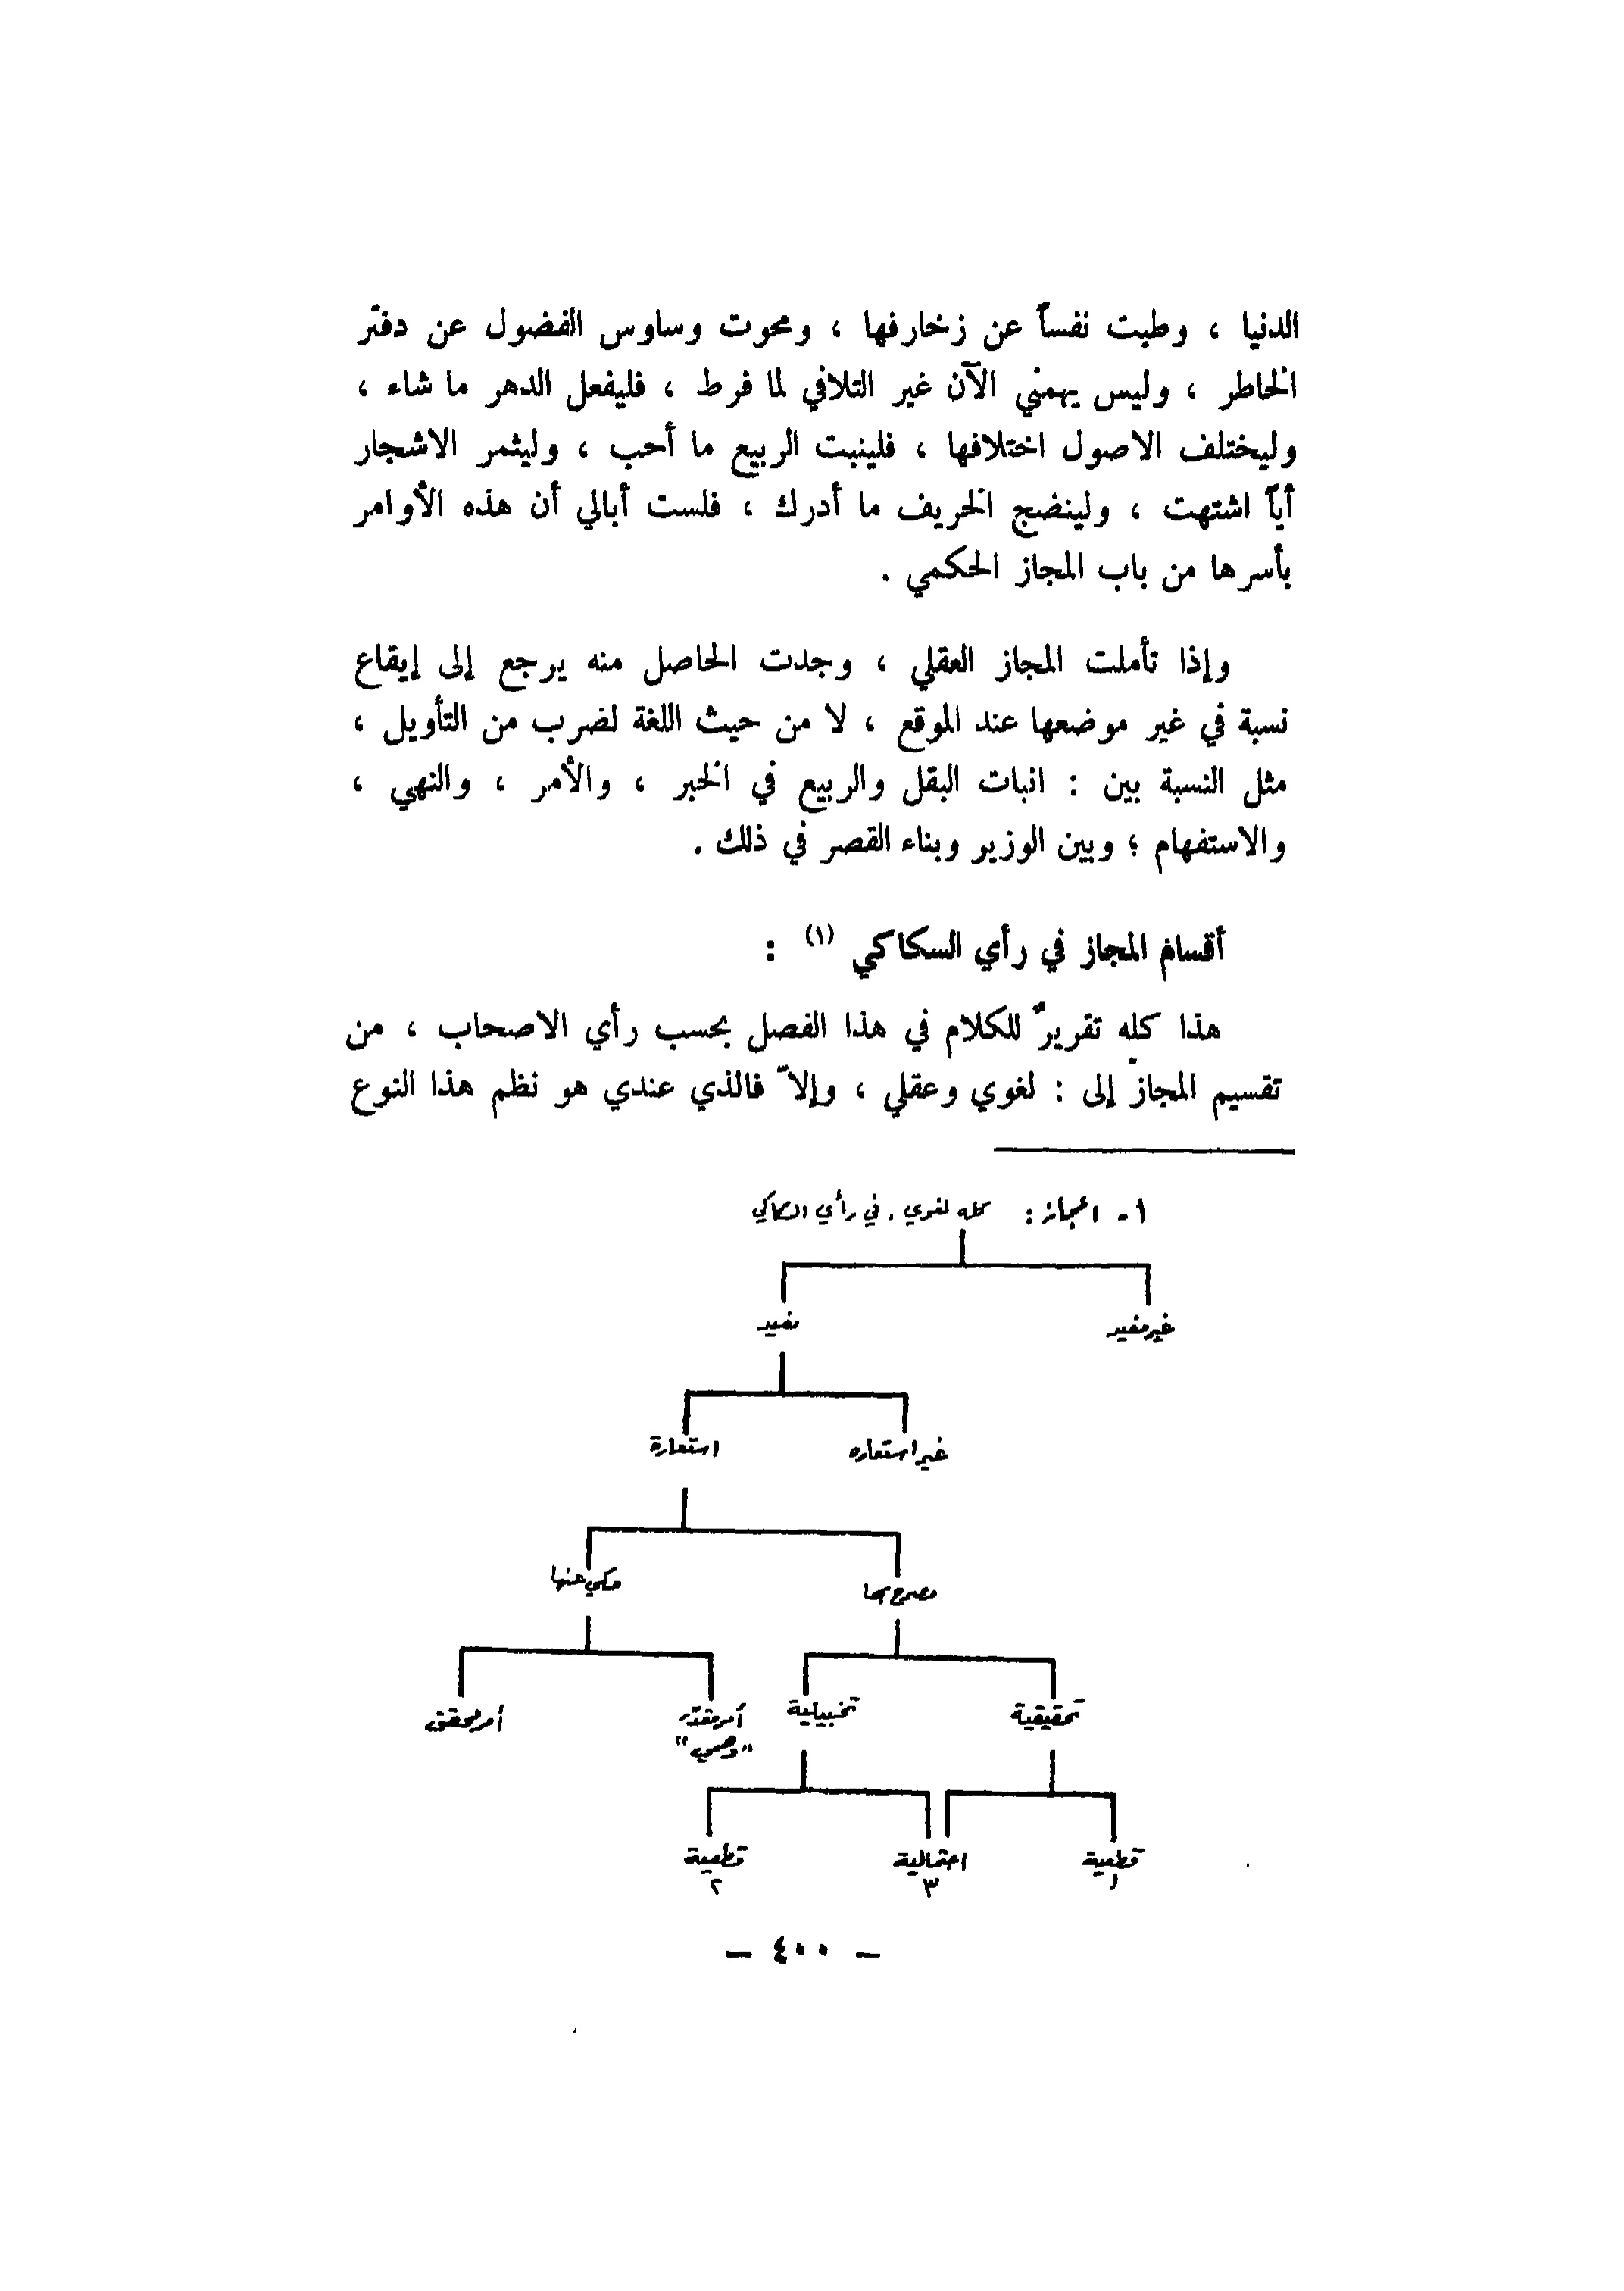 الدنيا ، وطبت نفساً عن زخارفها ، ومحوت وساوس الفضول عن دفتر
الخاطر ، وليس يهمني الآن غير التلافي لما فرط ، فليفعل الدهر ما شاء ،
وليختلف الاصول اختلافها ، فلينبت الربيع ما أحب ، وليثمر الاشجار
أياً اشتهت ، ولينضج الخريف ما أدرك ، فلست أبالي أن هذه الأوامر
بأسرها من باب المجاز الحكمي .
وإذا تأملت المجاز العقلي ، وجدت الحاصل منه يرجع إلى إيقاع
نسبة في غير موضعها عند الموقع ، لا من حيث اللغة لضرب من التأويل ،
مثل النسبة بين : انبات البقل والربيع في الخبر ، والأمر ، والنهي ،
والاستفهام ؛ وبين الوزير وبناء القصر في ذلك .
أقسام المجاز في رأي السكاكي (١) :
هذا كله تقريرٌ للكلام في هذا الفصل بحسب رأي الاصحاب ، من
تقسيم المجازّ إلى : لغوي وعقلي ، وإلاّ فالذي عندي هو نظم هذا النوع
١- المجاز : كله لغوي . في رأي السكاكي
غير مفيد
مفيد
غير استعاره
استعارة
مصرح بها
مكني عنها
تحقيقية
تخييلية
أمر مقدّر
"وهمي"
أمر محقق
قطعية
١
احتمالية
٣
قطعية
٢
— ٤٠٠ —